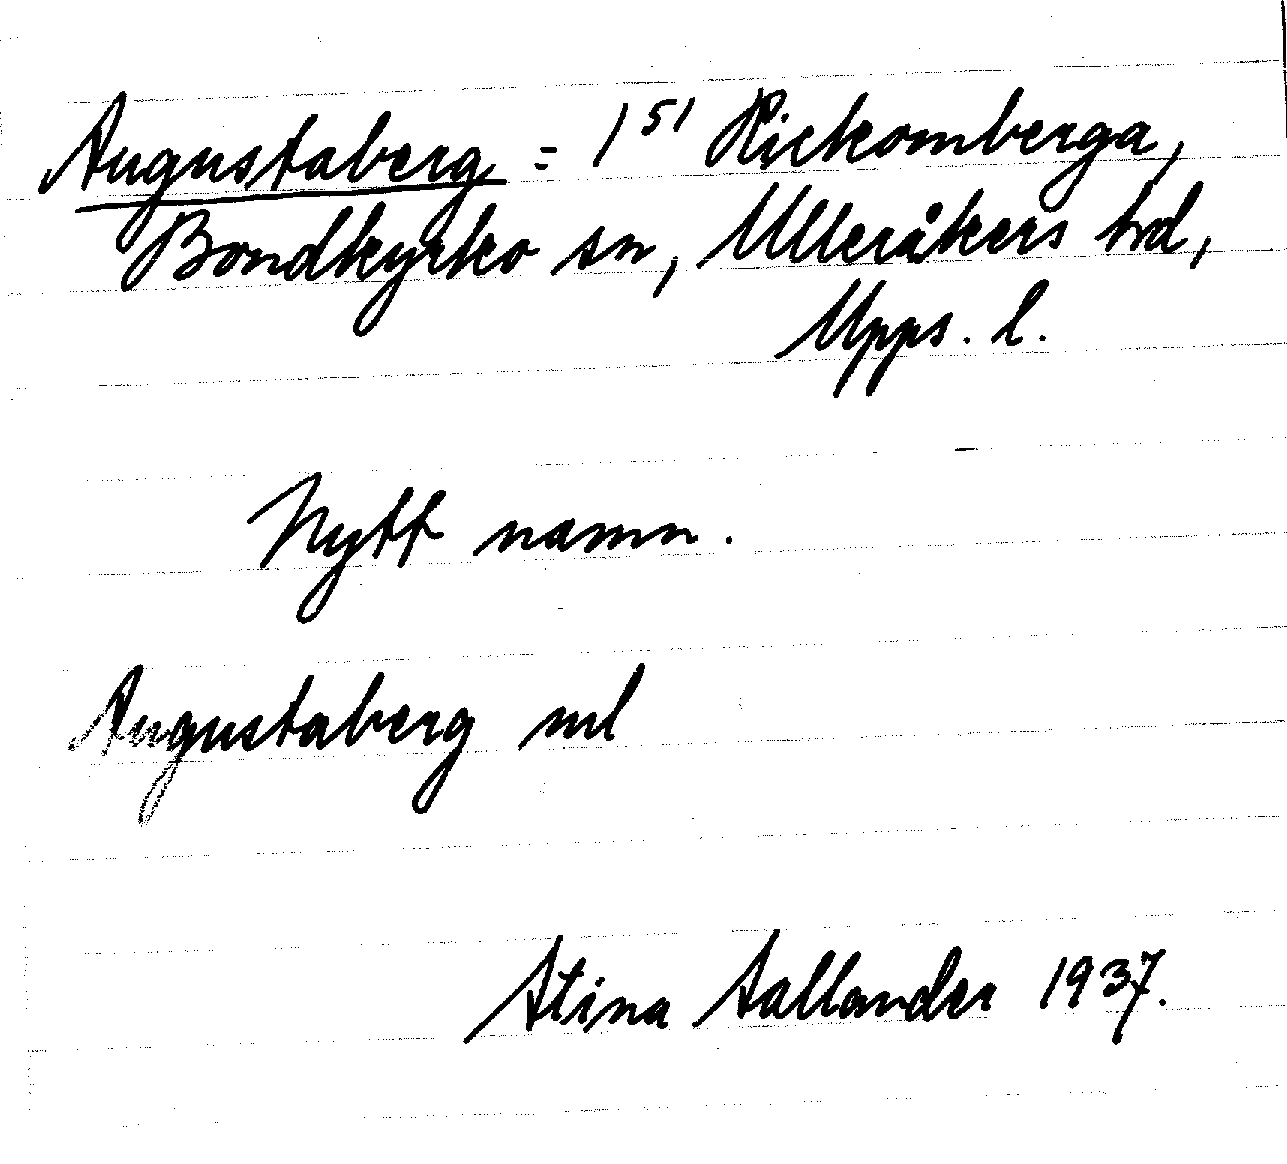 Augustaberg = 1⁵¹ Rickomberga,
Bondkyrko sn, Ulleråkers hd,
Upps. l.
Nytt namn.
Augustaberg ml
Stina Sallander 1937.